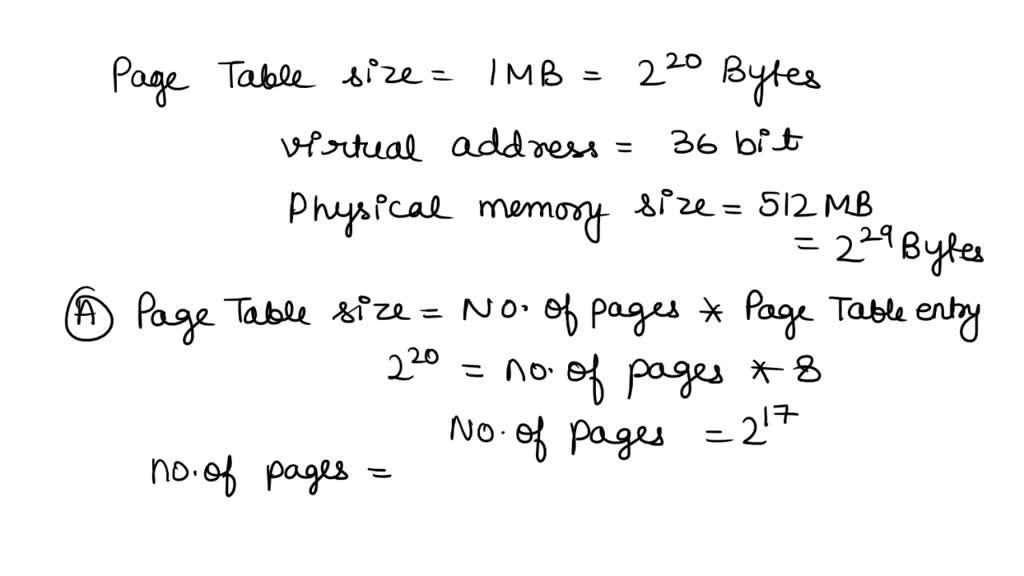 Page Table size = 1MB = 2²⁰ Bytes
virtual address = 36 bit
Physical memory size = 512 MB
= 2²⁹ Bytes
Ⓐ Page Table size = No. of pages * Page Table entry
2²⁰ = no. of pages * 8
No. of pages = 2¹⁷
no. of pages =